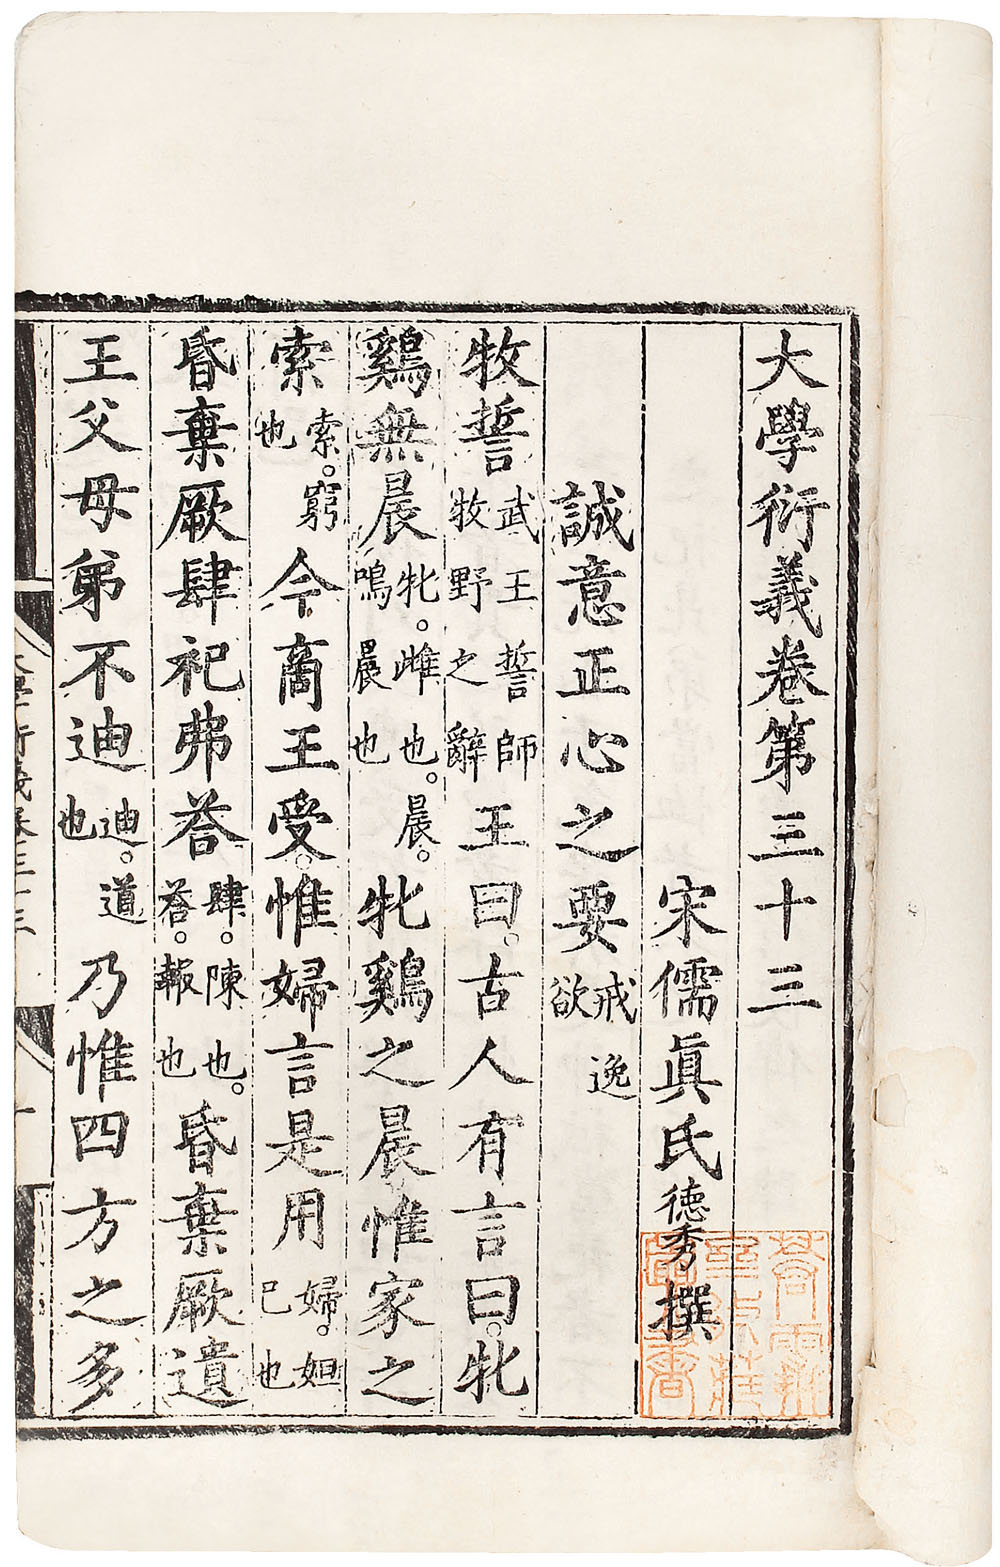 大學衍義卷第三十三
宋儒眞氏德秀撰
誠意正心之要戒逸欲
牧誓武王誓師牧野之辭王曰。古人有言曰。牝
鷄無晨牝。雌也。晨。鳴晨也牝鷄之晨惟家之
索索。窮也今商王受。惟婦言是用婦。妲己也
昏棄厥肆祀弗荅肆。陳也。荅。報也昏棄厥遺
王父母弟不迪迪。道也乃惟四方之多